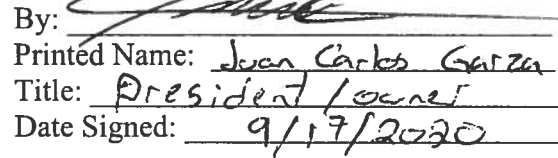 By:
Printed Name: Juan Carlos Garza
Title: President / owner
Date Signed: 9/17/2020